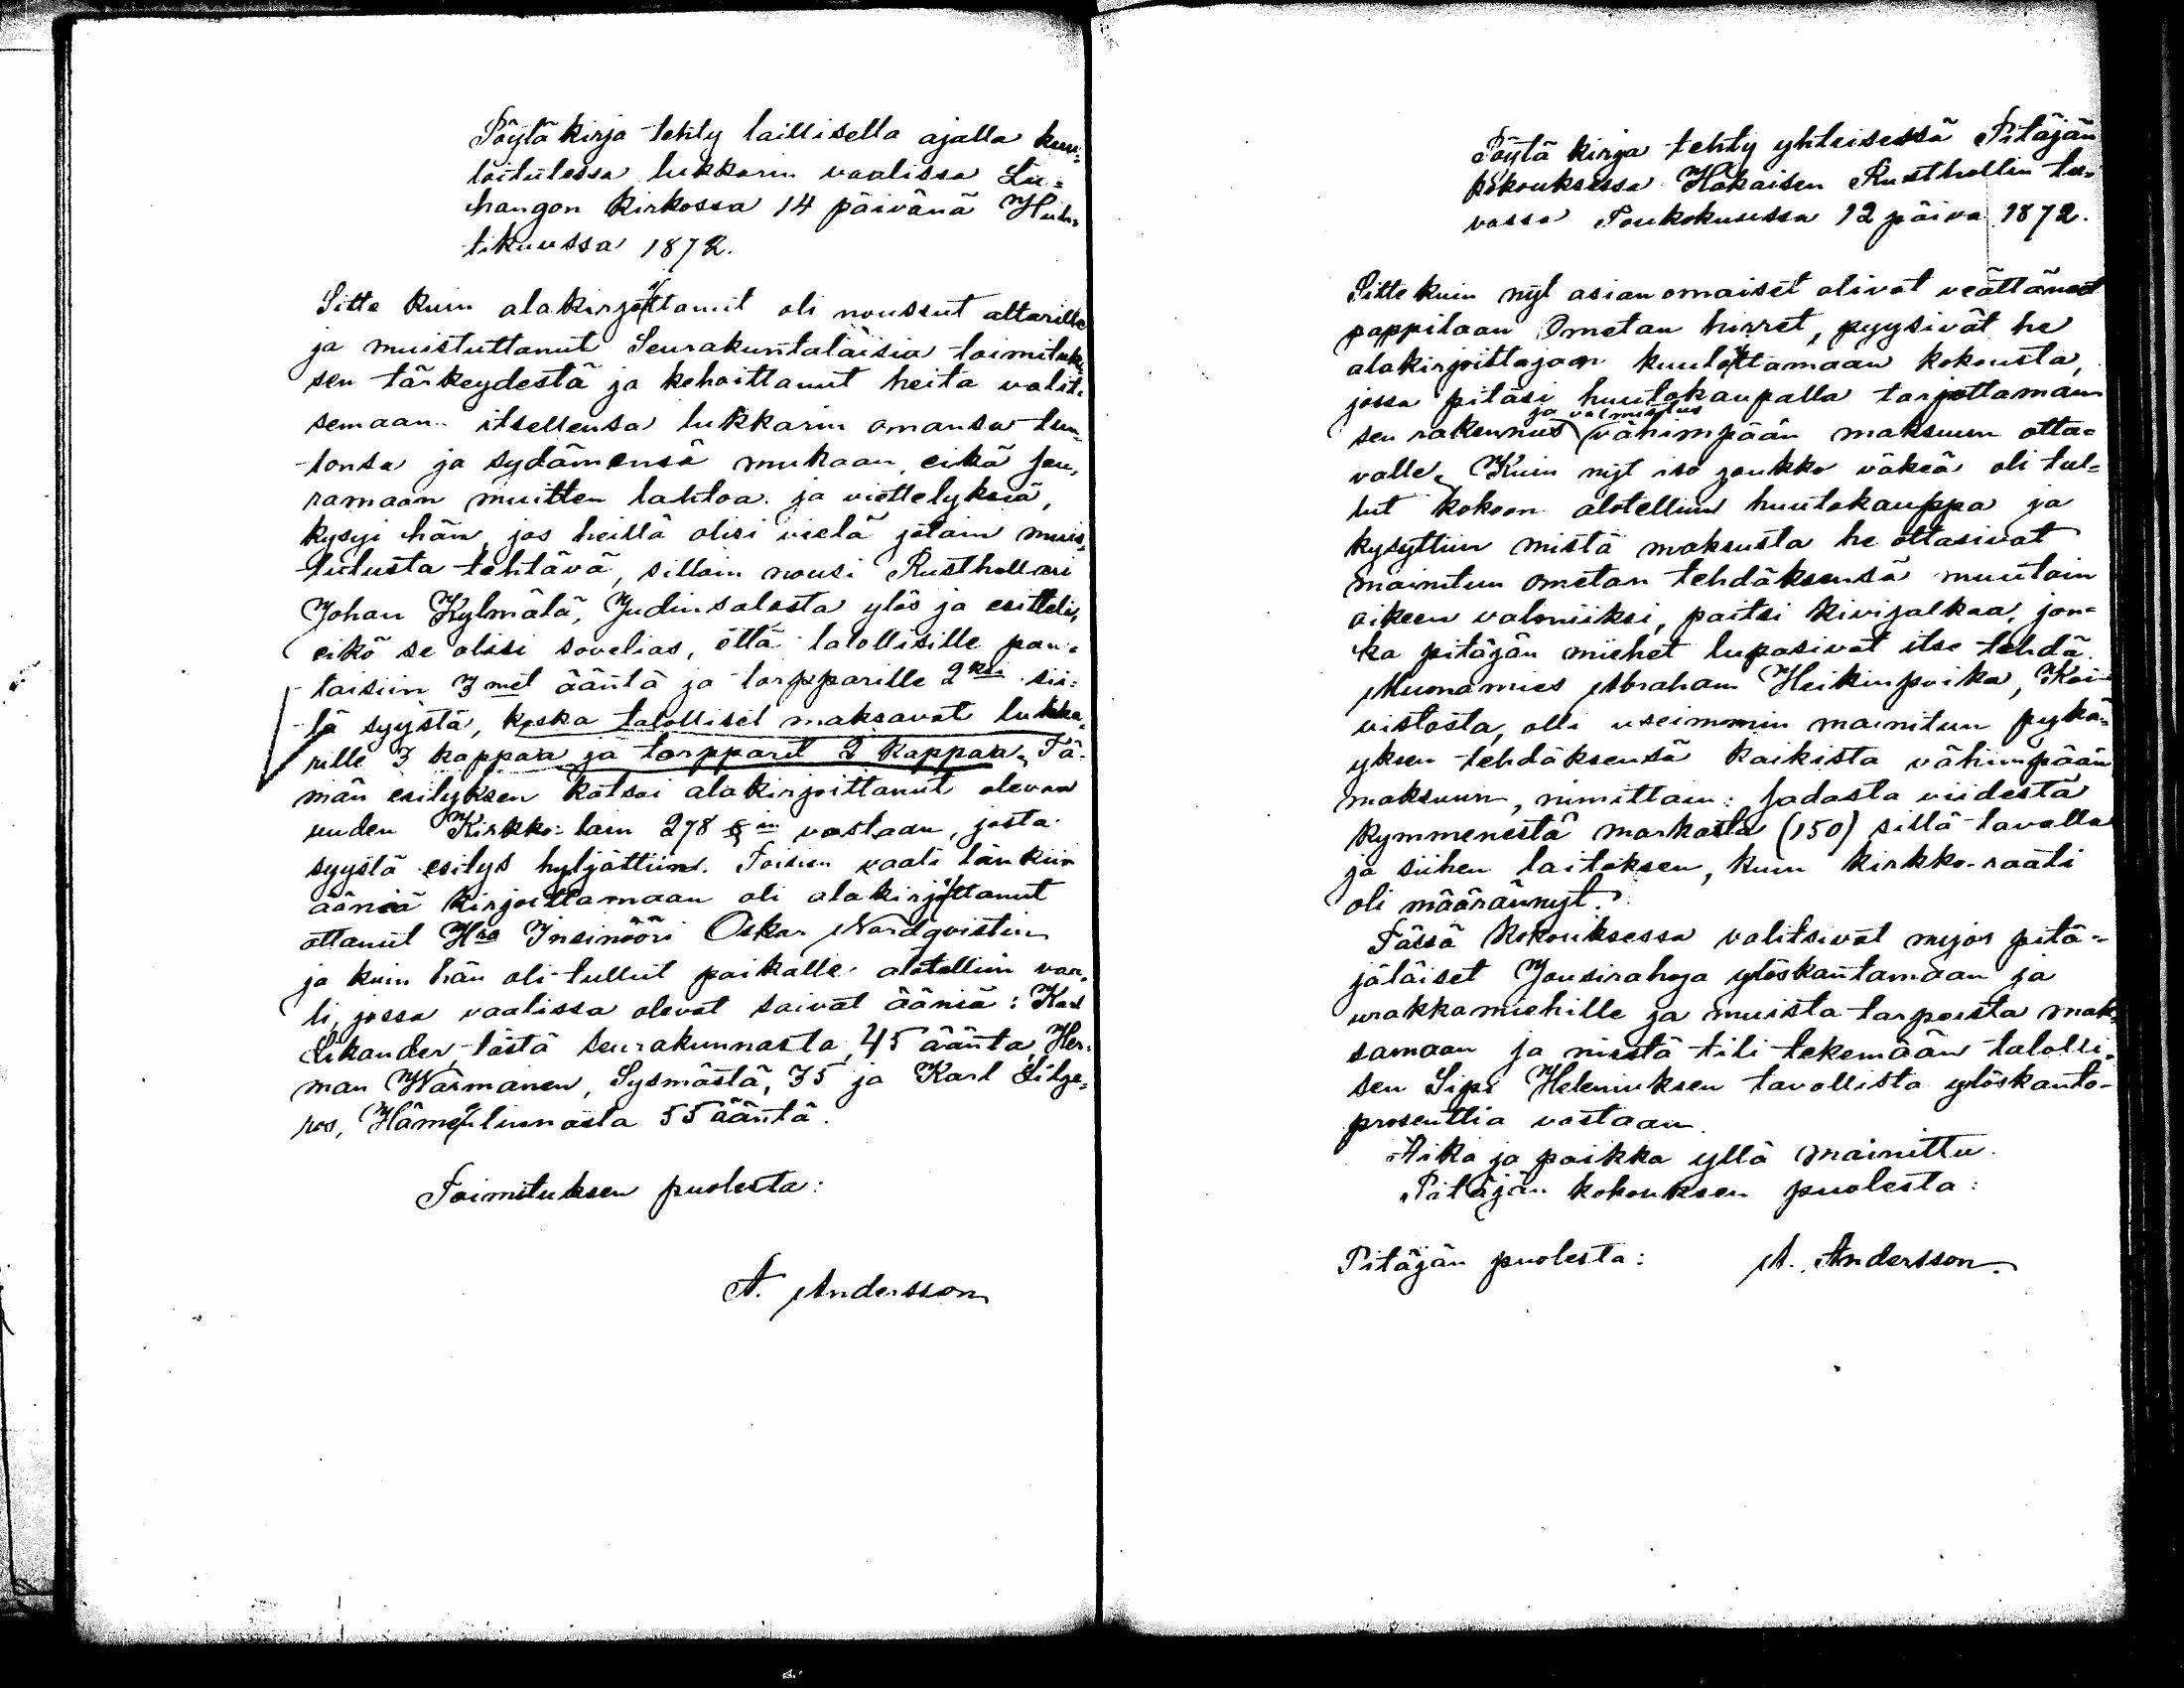 Pöytäkirja tehty laillisella ajalla kuu-
loitulessa lukkarin vaalissa Lu-
hangon kirkossa 14 päivänä Huh-
tikuussa 1872.
Sitte kuin alakirjoittanut oli noussut altarille
ja muistuttanut Seurakuntaläisiä toimituk-
sen tärkeydestä ja kehoittanut heitä valit-
semaan itsellensä lukkarin omansa tun-
tonsa ja sydämensä mukaan, eikä seu-
ramaan muitten lahtoa ja viettelyksiä,
kysyi hän, jos heillä olisi vielä jotain muis-
tutusta tehtävä, silloin nousi Rusthollari
Johan Kylmälä, Judinsalosta ylös ja esitteli,
eikö se olisi sovelias, että talollisille pan-
taisiin 3met ääntä ja torpparille 2ksi sii-
tä syystä, koska talolliset maksavat lukka-
rille 3 kappaa ja torpparit 2 kappaa. Tä-
män esityksen katsoi alakirjoittanut olevan
uuden Kirkko-lain 278 §n vastaan, josta
syystä esitys hyljättiin. Toisien vaali länkiin
ääniä kirjoittamaan oli alakirjoittanut
ottanut Hra Insinööri Oskar Nordqvistin
ja kuin hän oli tullut paikalle alotettiin vaa-
li, jossa vaalissa olevat saivat ääniä: Karl
Sikander, tästä seurakunnasta, 45 ääntä, Her-
man Wärmanen, Sysmästä, 35 ja Karl Lilje-
ros, Hämeenlinnasta 55 ääntä.
Toimituksen puolesta:
A. Andersson
Pöytäkirja tehty yhteisessä Pitäjän
kokouksessa Hakaisen Rusthollin tu-
vassa Toukokuussa 12 päivä 1872.
Sitte kuin nyt asian omaiset olivat veättäneet
pappilaan Ometan hirret, pyysivät he
alakirjoittajaan kuuloittamaan kokousta,
jossa pitäsi huutokaupalla tarjottaman
ja valmistus
sen rakennus vähimpään maksuun otta-
valle. Kuin nyt iso joukko väkeä oli tul-
lut kokoon alotettiin huutokauppa ja
kysyttiin mistä maksusta he ottasivat
mainitun ometan tehdäksensä muutoin
oikeen valmiiksi, paitsi kivijalkaa, jon-
ka pitäjän miehet lupasivat itse tehdä.
Muonamies Abraham Heikinpoika, Koi-
vistosta, olli useimmin mainitun pykä-
yksen tehdäksensä kaikista vähimpään
maksuun, nimittäin: Sadasta viidestä
kymmenestä markasta (150) sillä tavalla
ja siihen laitoksen, kuin kirkko-raati
oli määrännyt.
Tässä kokouksessa valitsivat myös pitä-
jäläiset Jousirahoja ylöskantamaan ja
urakkamiehille ja muista tarpeista mak-
samaan ja niistä tili tekemään talolli-
sen Sipi Heleniuksen tavallista ylöskanto-
prosenttia vastaan.
Aika ja paikka yllä mainittu.
Pitäjän kokouksen puolesta:
Pitäjän puolesta: A. Andersson.